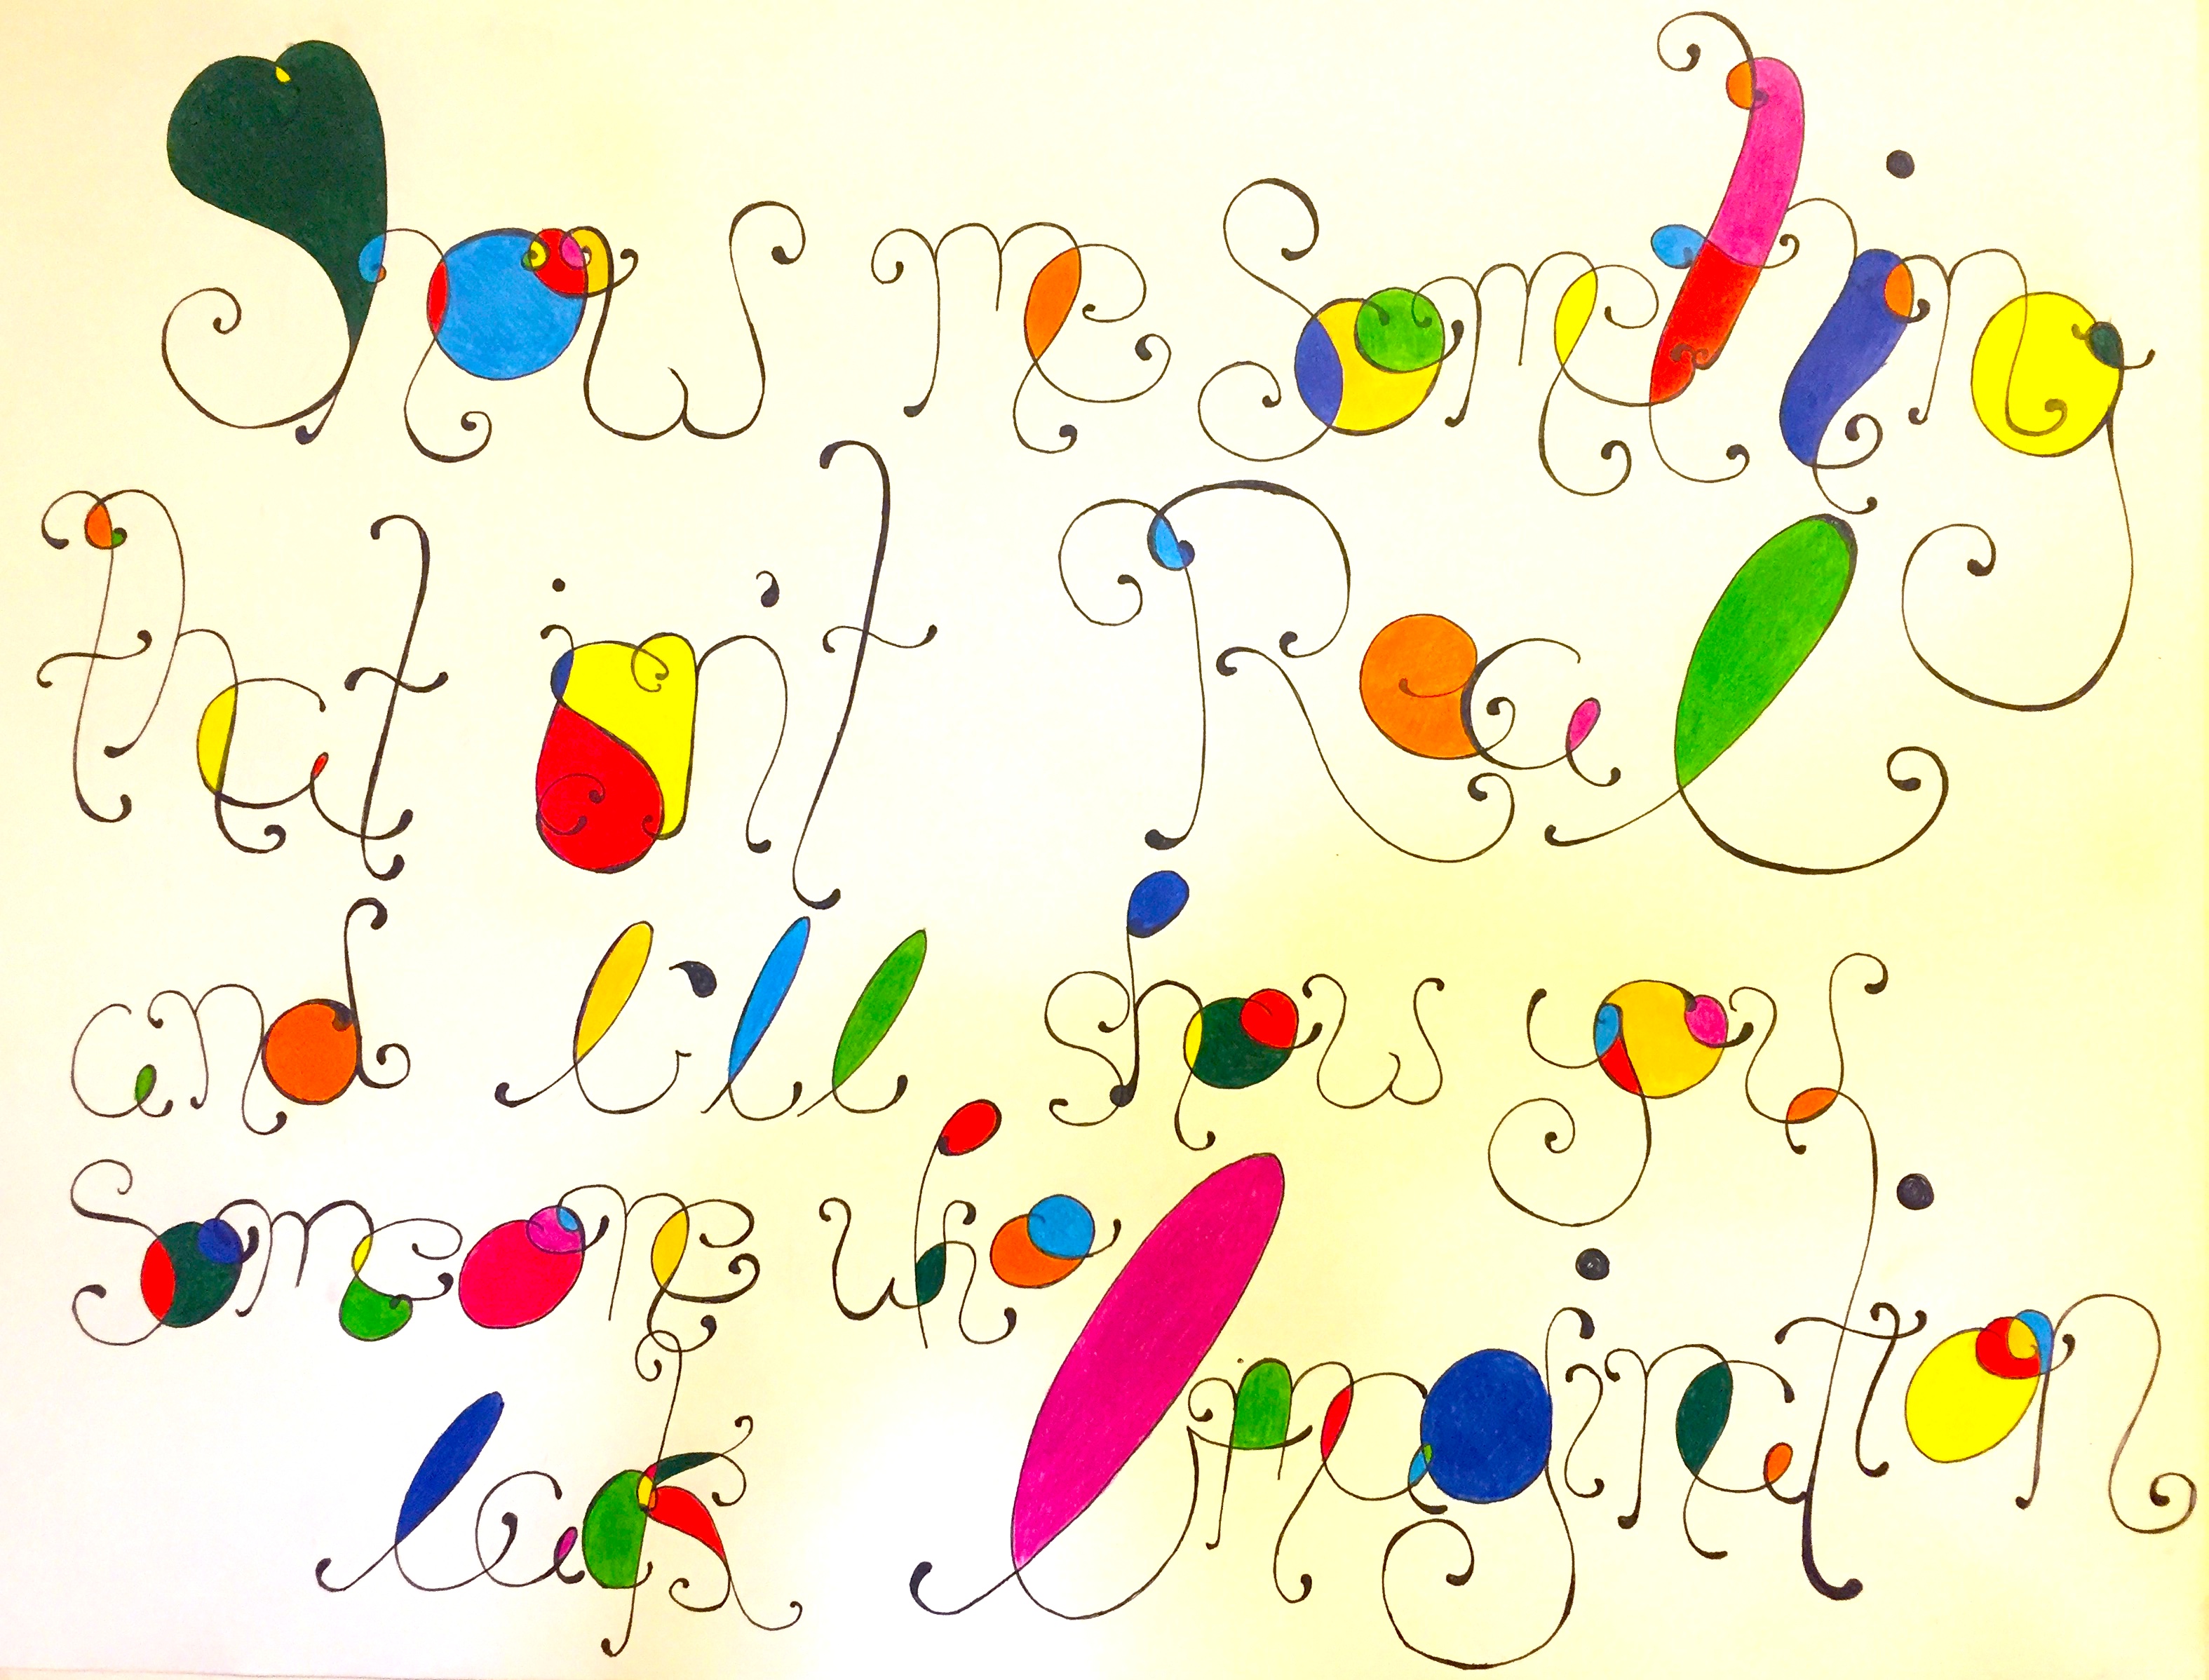 Show me Something
that isn't Real
and I'll show you
Someone who
lacks Imagination